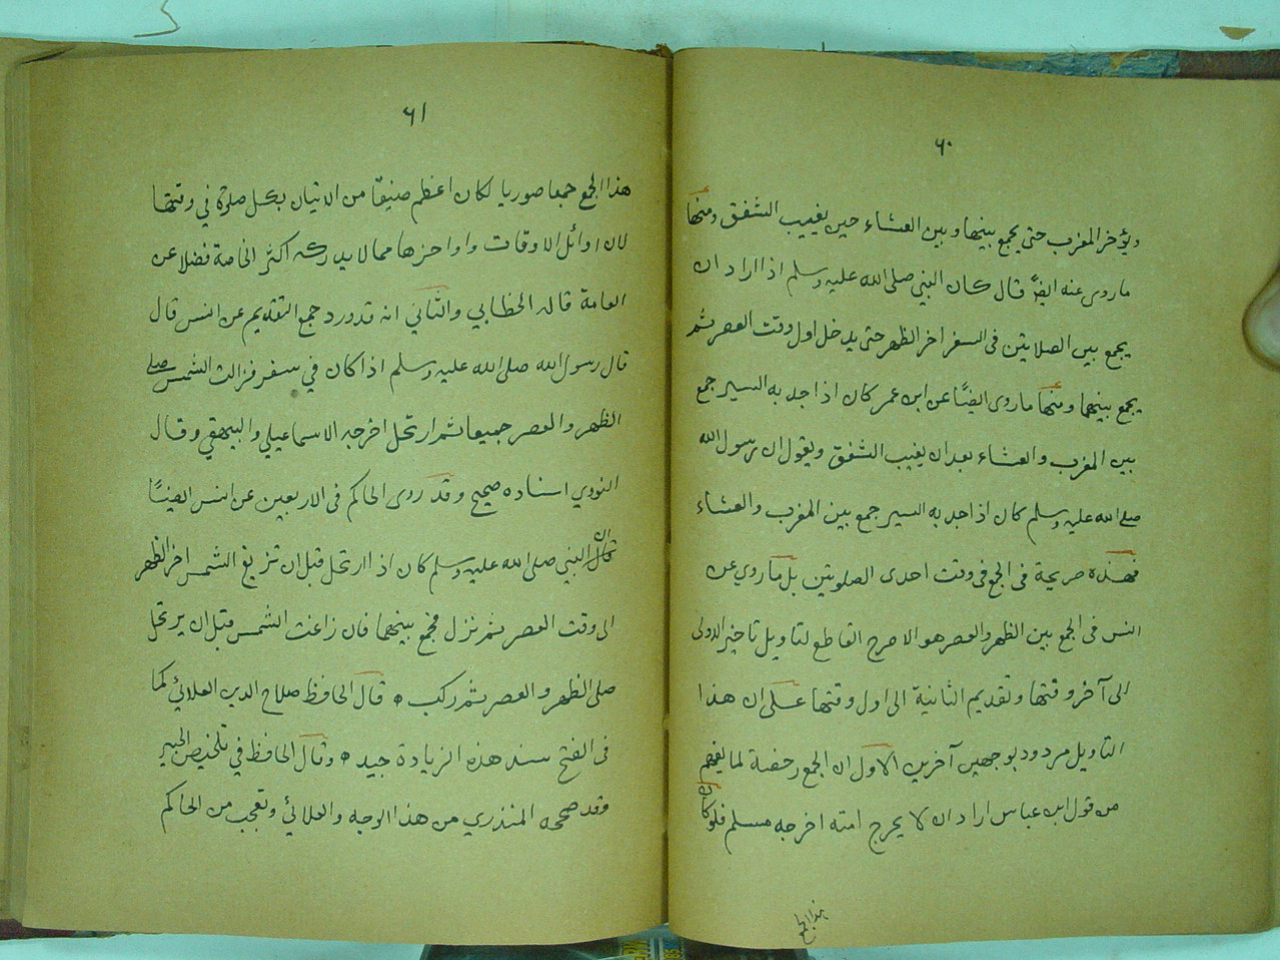 ٦٠
ويؤخر المغرب حتى يجمع بينها وبين العشاء حين يغيب الشفق ومنها
ما روى عنه ايضًا قال كان النبي صلى الله عليه وسلم اذا اراد ان
يجمع بين الصلاتين فى السفر اخر الظهر حتى يدخل اول وقت العصر ثم
يجمع بينهما ومنها ما روى ايضًا عن ابن عمر كان اذا جد به السير جمع
بين المغرب والعشاء بعد ان يغيب الشفق ويقول ان رسول الله
صلى الله عليه وسلم كان اذا جد به السير جمع بين المغرب والعشاء
فهذه صريحة فى الجمع فى وقت احدى الصلوتين بل ما روي عن
انس فى الجمع بين الظهر والعصر هو الاصرح القاطع لتاويل تاخير الاولى
الى آخر وقتها وتقديم الثانية الى اول وقتها على ان هذا
التاويل مردود بوجهين آخرين الاول ان الجمع رخصة لما يفهم
من قول ابن عباس اراد ان لا يحرج امته اخرجه مسلم فلو كان
هذا الجمع
٦١
هذا الجمع جمعا صوريا لكان اعظم ضيقًا من الاتيان بكل صلوة في وقتها
لان اوائل الاوقات واواخرها مما لا يدركه اكثر الخاصة فضلا عن
العامة قاله الخطابي والثاني انه قد ورد جمع التقديم عن انس قال
قال رسول الله صلى الله عليه وسلم اذا كان في سفر فزالت الشمس صلى
الظهر والعصر جميعا ثم ارتحل اخرجه الاسماعيلي والبيهقي وقال
النووي اسناده صحيح وقد روى الحاكم فى الاربعين عن انس ايضًا
ان النبي صلى الله عليه وسلم كان اذا ارتحل قبل ان تزيغ الشمس اخر الظهر
الى وقت العصر ثم نزل فجمع بينهما فان زاغت الشمس قبل ان يرتحل
صلى الظهر والعصر ثم ركب ٥ قال الحافظ صلاح الدين العلائي كما
فى الفتح سند هذه الزيادة جيد ٥ وقال الحافظ في تلخيص الحبير
وقد صححه المنذري من هذا الوجه والعلائي وتعجب من الحاكم